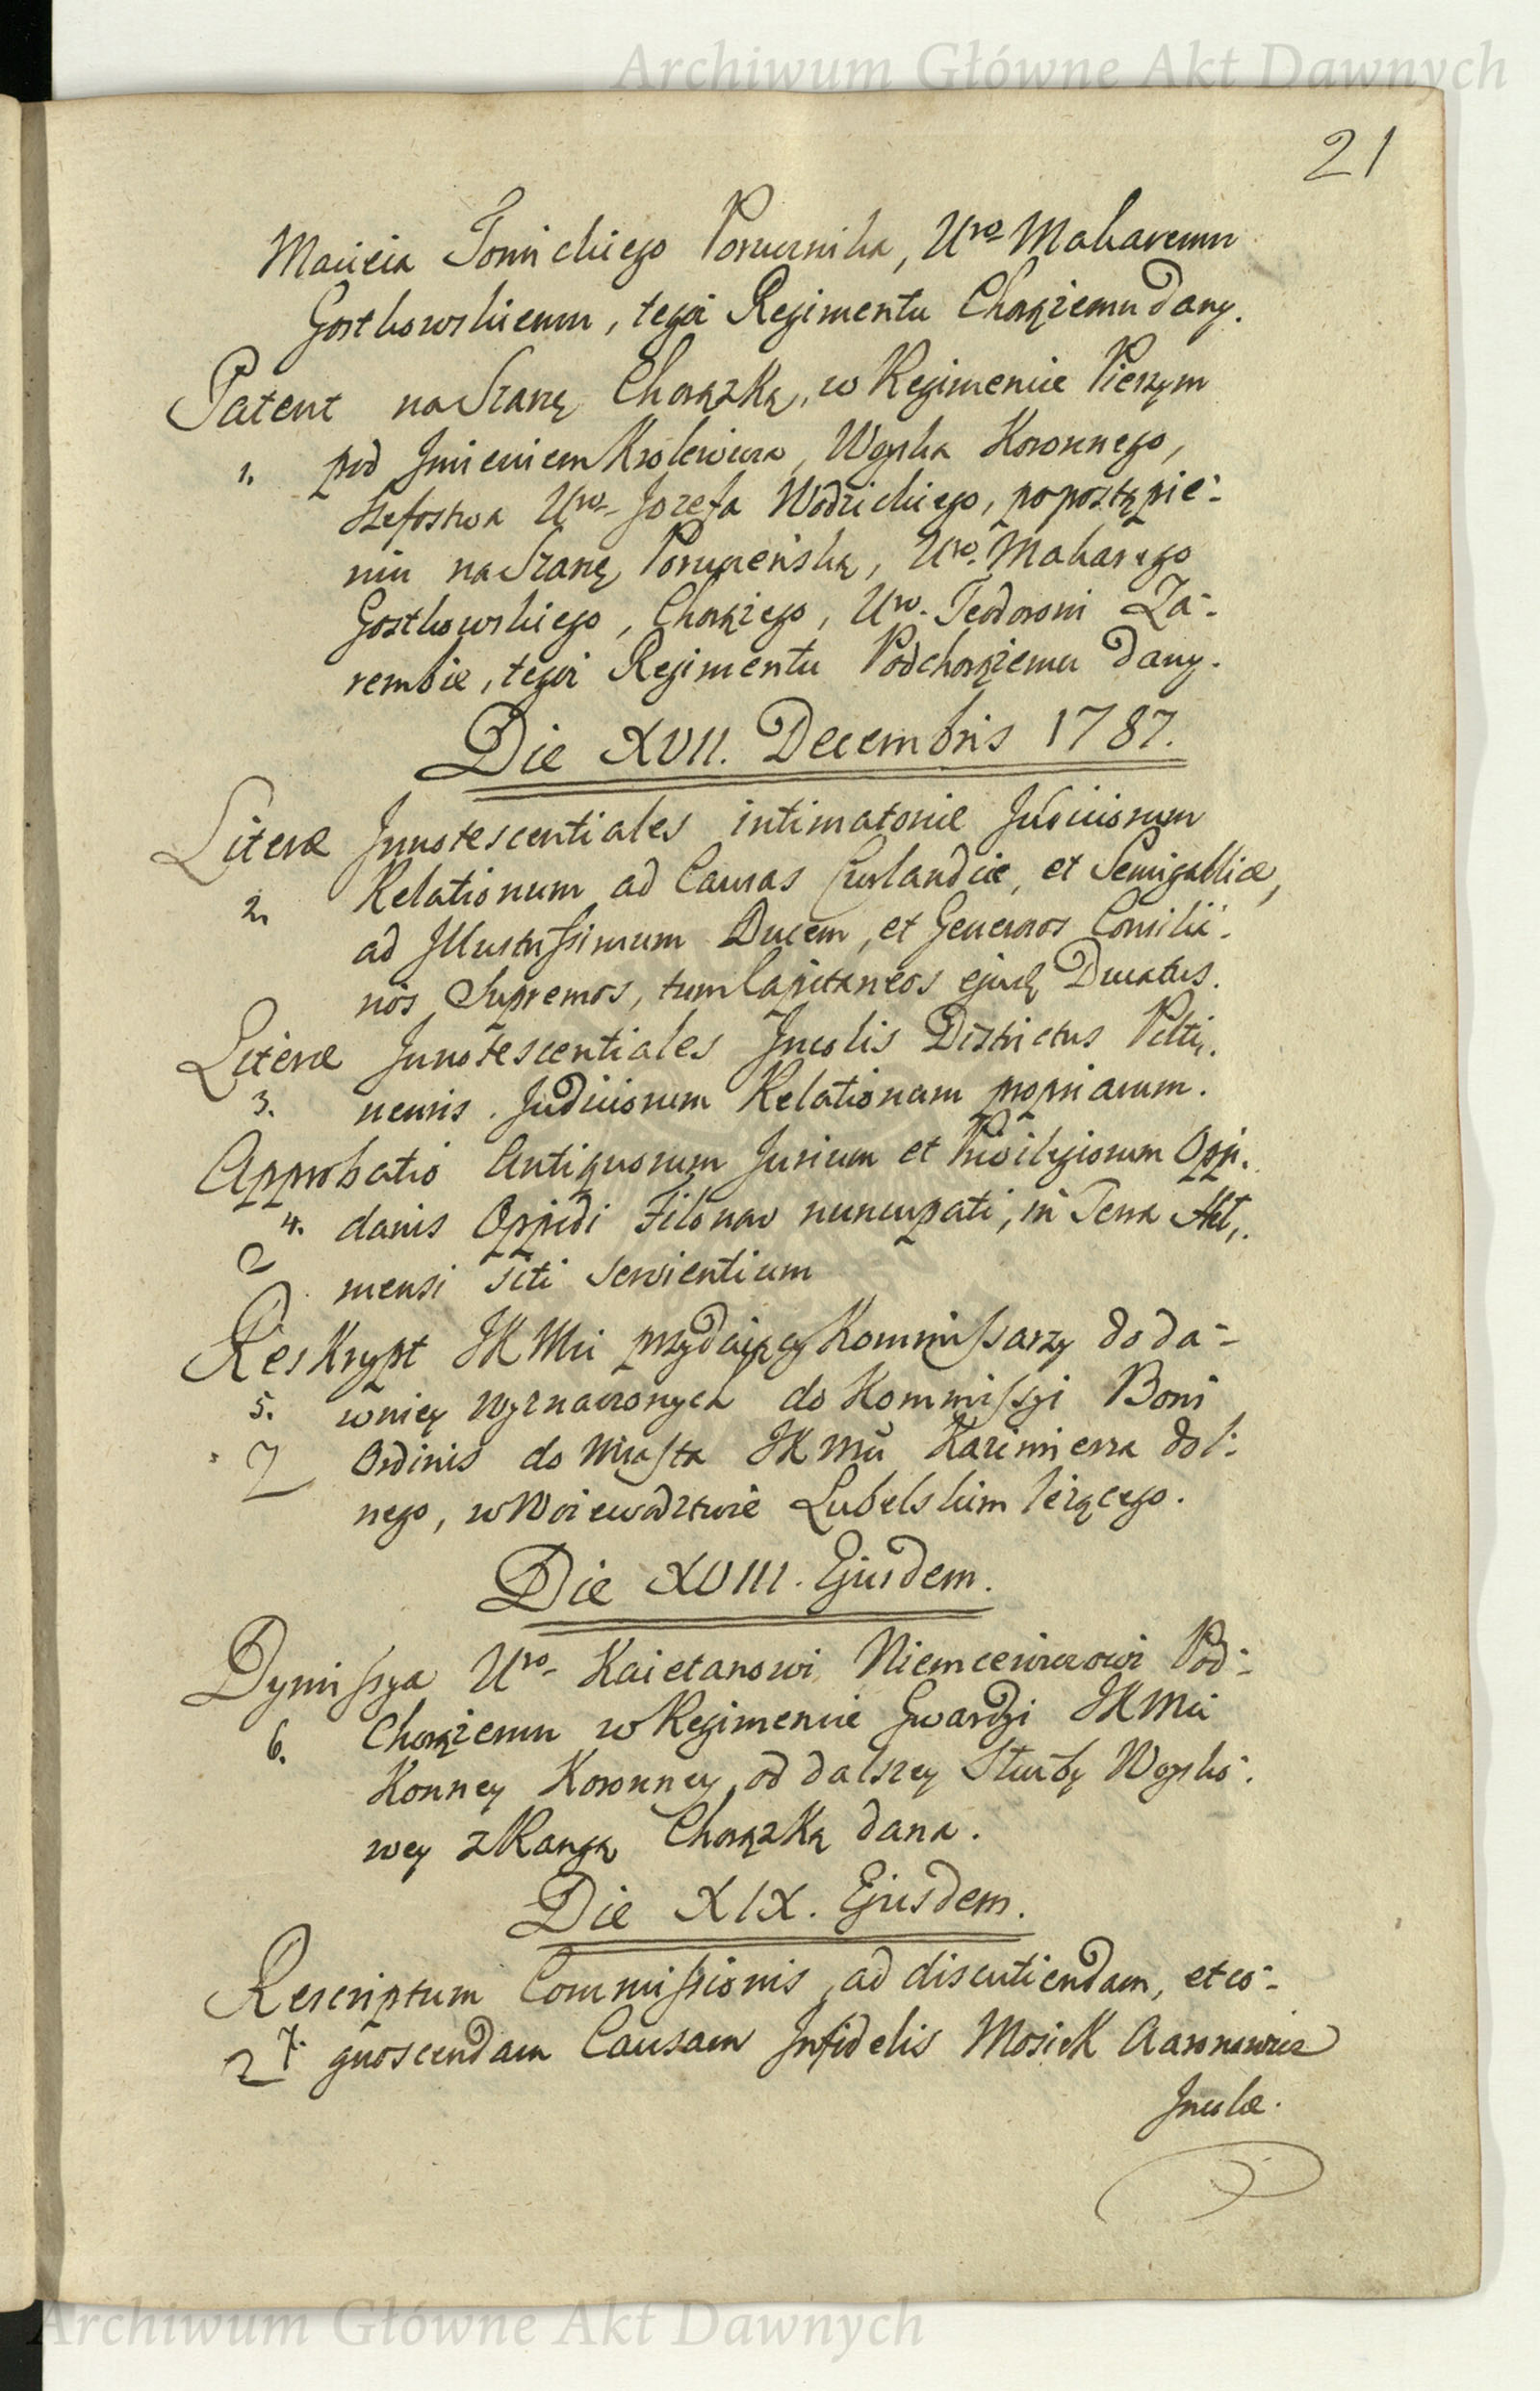 Archiwum Główne Akt Dawnych
21
Macieia Tomickiego Porucznika, Uro Makaremu
Gostkowskiemu, tegoż Regimentu Chorążemu dany.
Patent na Szarżę Chorążką, w Regimencie Pieszym
1. pod Jmieniem Krolewicza, Woyska Koronnego,
Szefostwa Uro Jozefa Wodzickiego, po postąpie-
niu na Szarżę Poruczeńską, Uro Makarego
Gostkowskiego, Chorążego, Uro. Teodorowi Za-
rembie, tegoż Regimentu Podchorążemu dany.
Die XVII. Decembris 1787.
Literæ Jnnotescentiales intimatoriæ Judiciorum
2. Relationum ad Causas Curlandiæ, et Semigalliæ,
ad Jllustrissimum Ducem, et Generosos Consilia-
rios Supremos, tum Capitaneos ejusd. Ducatus.
Literæ Jnnotescentiales Jncolis Districtus Pilti-
3. nensis Judiciorum Relationum propriarum.
Approbatio Antiquorum Jurium et Privilegiorum Oppi-
4. danis Oppidi Filonow nuncupati, in Terra
2 mensi siti servientium
Reskrypt JKMci przydaiący Kommissarzy do da-
5. wniey wyznaczonych do Kommissyi Boni
2 Ordinis do Miasta JKMci Kazimierza dol-
nego, w Woiewodztwie Lubelskim leżącego.
Die XVIII. Ejusdem.
Dymissya Uro Kaietanowi Niemcewiczowi Pod-
6. Chorążemu w Regimencie Gwardyi JKMci
Konney Koronney, od dalszey Służby Woysko-
wey z Rangą Chorążką dana.
Die XIX. Ejusdem.
Rescriptum Commissionis, ad discutiendam, et co-
2 7. gnoscendam Causam Jnfidelis Mosiek Aaronowicz
Jncolæ.
Archiwum Główne Akt Dawnych